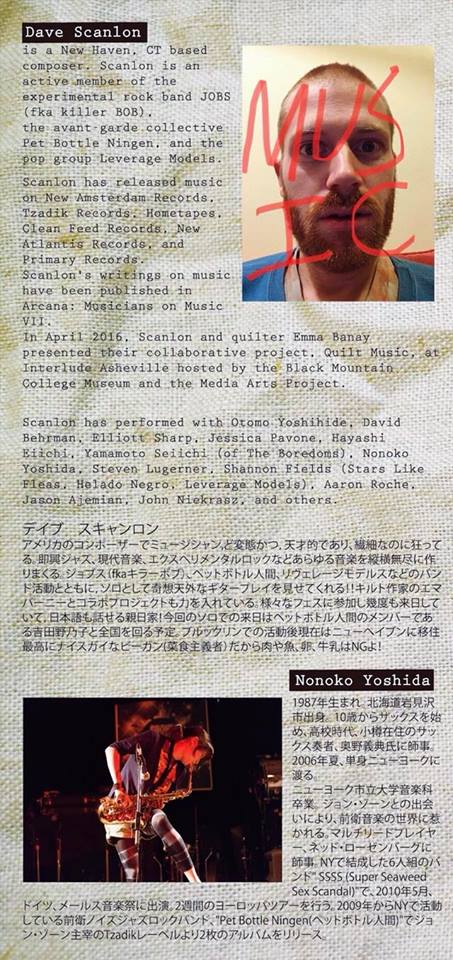 Dave Scanlon
is a New Haven, CT based
composer. Scanlon is an
active member of the
experimental rock band JOBS
(fka killer BOB),
the avant-garde collective
Pet Bottle Ningen, and the
pop group Leverage Models.
Scanlon has released music
on New Amsterdam Records,
Tzadik Records, Hometapes,
Clean Feed Records, New
Atlantis Records, and
Primary Records.
Scanlon's writings on music
have been published in
Arcana: Musicians on Music
VII.
MUS
IC
In April 2016, Scanlon and quilter Emma Banay
presented their collaborative project, Quilt Music, at
Interlude Asheville hosted by the Black Mountain
College Museum and the Media Arts Project.
Scanlon has performed with Otomo Yoshihide, David
Behrman, Elliott Sharp, Jessica Pavone, Hayashi
Eiichi, Yamamoto Seiichi (of The Boredoms), Nonoko
Yoshida, Steven Lugerner, Shannon Fields (Stars Like
Fleas, Helado Negro, Leverage Models), Aaron Roche,
Jason Ajemian, John Niekrasz, and others.
デイブ スキャンロン
アメリカのコンポーザーでミュージシャン,ど変態かつ、天才的であり、繊細なのに狂って
る。即興ジャズ、現代音楽、エクスペリメンタルロックなどあらゆる音楽を縦横無尽に作
りまくる。ジョブス(fkaキラーボブ)、ペットボトル人間、リヴェレージモデルスなどのバン
ド活動とともに、ソロとして奇想天外なギタープレイを見せてくれる!!キルト作家のエマ
バーニーとコラボプロジェクトも力を入れている。様々なフェスに参加し幾度も来日して
いて、日本語も話せる親日家!今回のソロでの来日はペットボトル人間のメンバーであ
る吉田野乃子と全国を回る予定。ブルックリンでの活動後現在はニューヘイブンに移住
最高にナイスガイなビーガン(菜食主義者)だから肉や魚、卵、牛乳はNGよ!
Nonoko Yoshida
1987年生まれ。北海道岩見沢
市出身。10歳からサックスを始
め、高校時代、小樽在住のサッ
クス奏者、奥野義典氏に師事。
2006年夏、単身ニューヨークに
渡る。
ニューヨーク市立大学音楽科
卒業。ジョン・ゾーンとの出会
いにより、前衛音楽の世界に惹
かれる。マルチリードプレイヤ
ー、ネッド・ローゼンバーグに
師事。NYで結成した6人組のバ
ンド" SSSS (Super Seaweed
Sex Scandal)"で、2010年5月、
ドイツ、メールス音楽祭に出演。2週間のヨーロッパツアーを行う。2009年からNYで活動
している前衛ノイズジャズロックバンド、"Pet Bottle Ningen(ペットボトル人間)"でジョ
ン・ゾーン主宰のTzadikレーベルより2枚のアルバムをリリース。